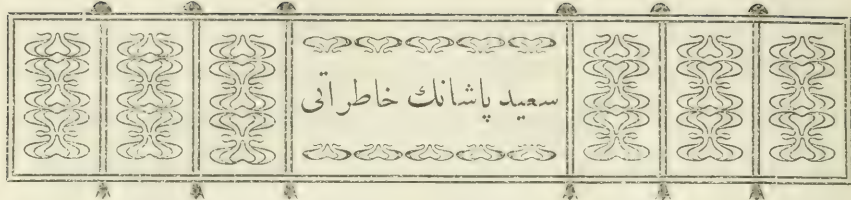 سعيد پاشانك خاطراتى